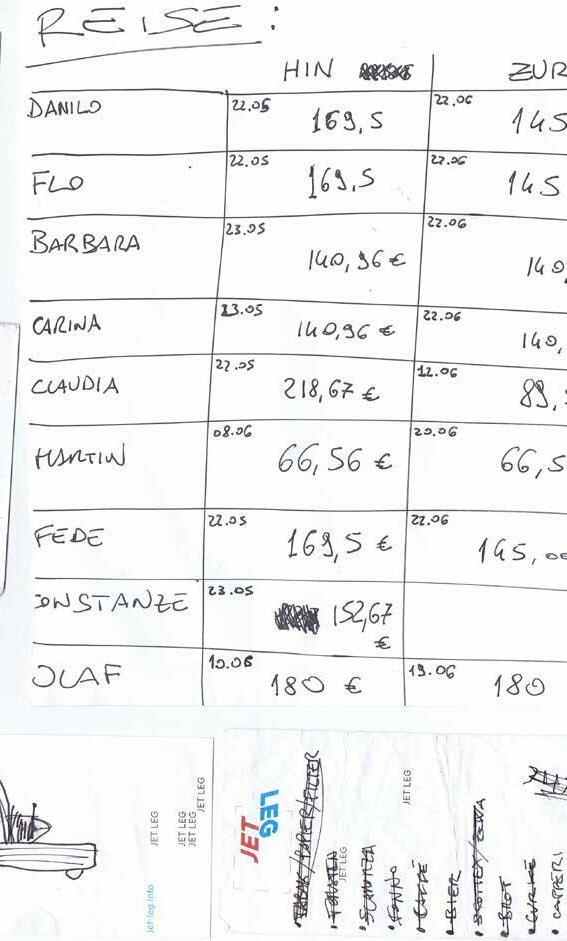 REISE:
HIN ZUR
DANILO 22.05 169,5 22.06 145
FLO 22.05 169,5 22.06 145
BARBARA 23.05 140,96 € 22.06 140,
CARINA 23.05 140,96 € 22.06 140,
CLAUDIA 22.05 218,67 € 12.06 89,
MARTIN 08.06 66,56 € 20.06 66,5
FEDE 22.05 169,5 € 22.06 145,00
ONSTANZE 23.05 152,67
€
OLAF 10.06 180 € 19.06 180
jet-leg.info
JET LEG
JET LEG
JET LEG
JET LEG
JET
LEG
JET LEG
JET LEG
• TONNO
• CAFFÉ
• BIER
• BROT
• CAPPERI